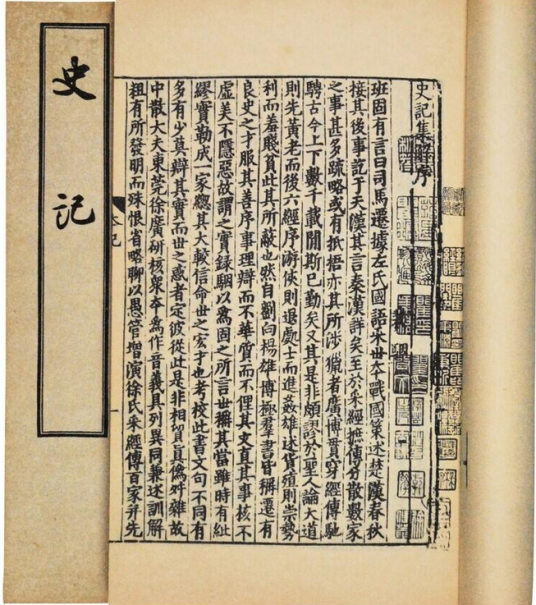 史記
史記集解序
班固有言曰司馬遷據左氏國語采世本戰國策述楚漢春秋
接其後事訖于天漢其言秦漢詳矣至於采經摭傳分散數家
之事甚多疏略或有抵捂亦其所涉獵者廣博貫穿經傳馳
騁古今上下數千載閒斯已勤矣又其是非頗謬於聖人論大道
則先黃老而後六經序游俠則退處士而進姦雄述貨殖則崇勢
利而羞賤貧此其所蔽也然自劉向楊雄博極羣書皆稱遷有
良史之才服其善序事理辯而不華質而不俚其文直其事核不
虛美不隱惡故謂之實錄駰以爲固之所言世稱其當雖時有紕
繆實勒成一家緫其大較信命世之宏才也考校此書文句不同有
多有少莫辯其實而世之惑者定彼從此是非相貿真僞舛雜故
中散大夫東莞徐廣研核衆本爲作音義具列異同兼述訓解
粗有所發明而殊恨省略聊以愚管增演徐氏采經傳百家并先